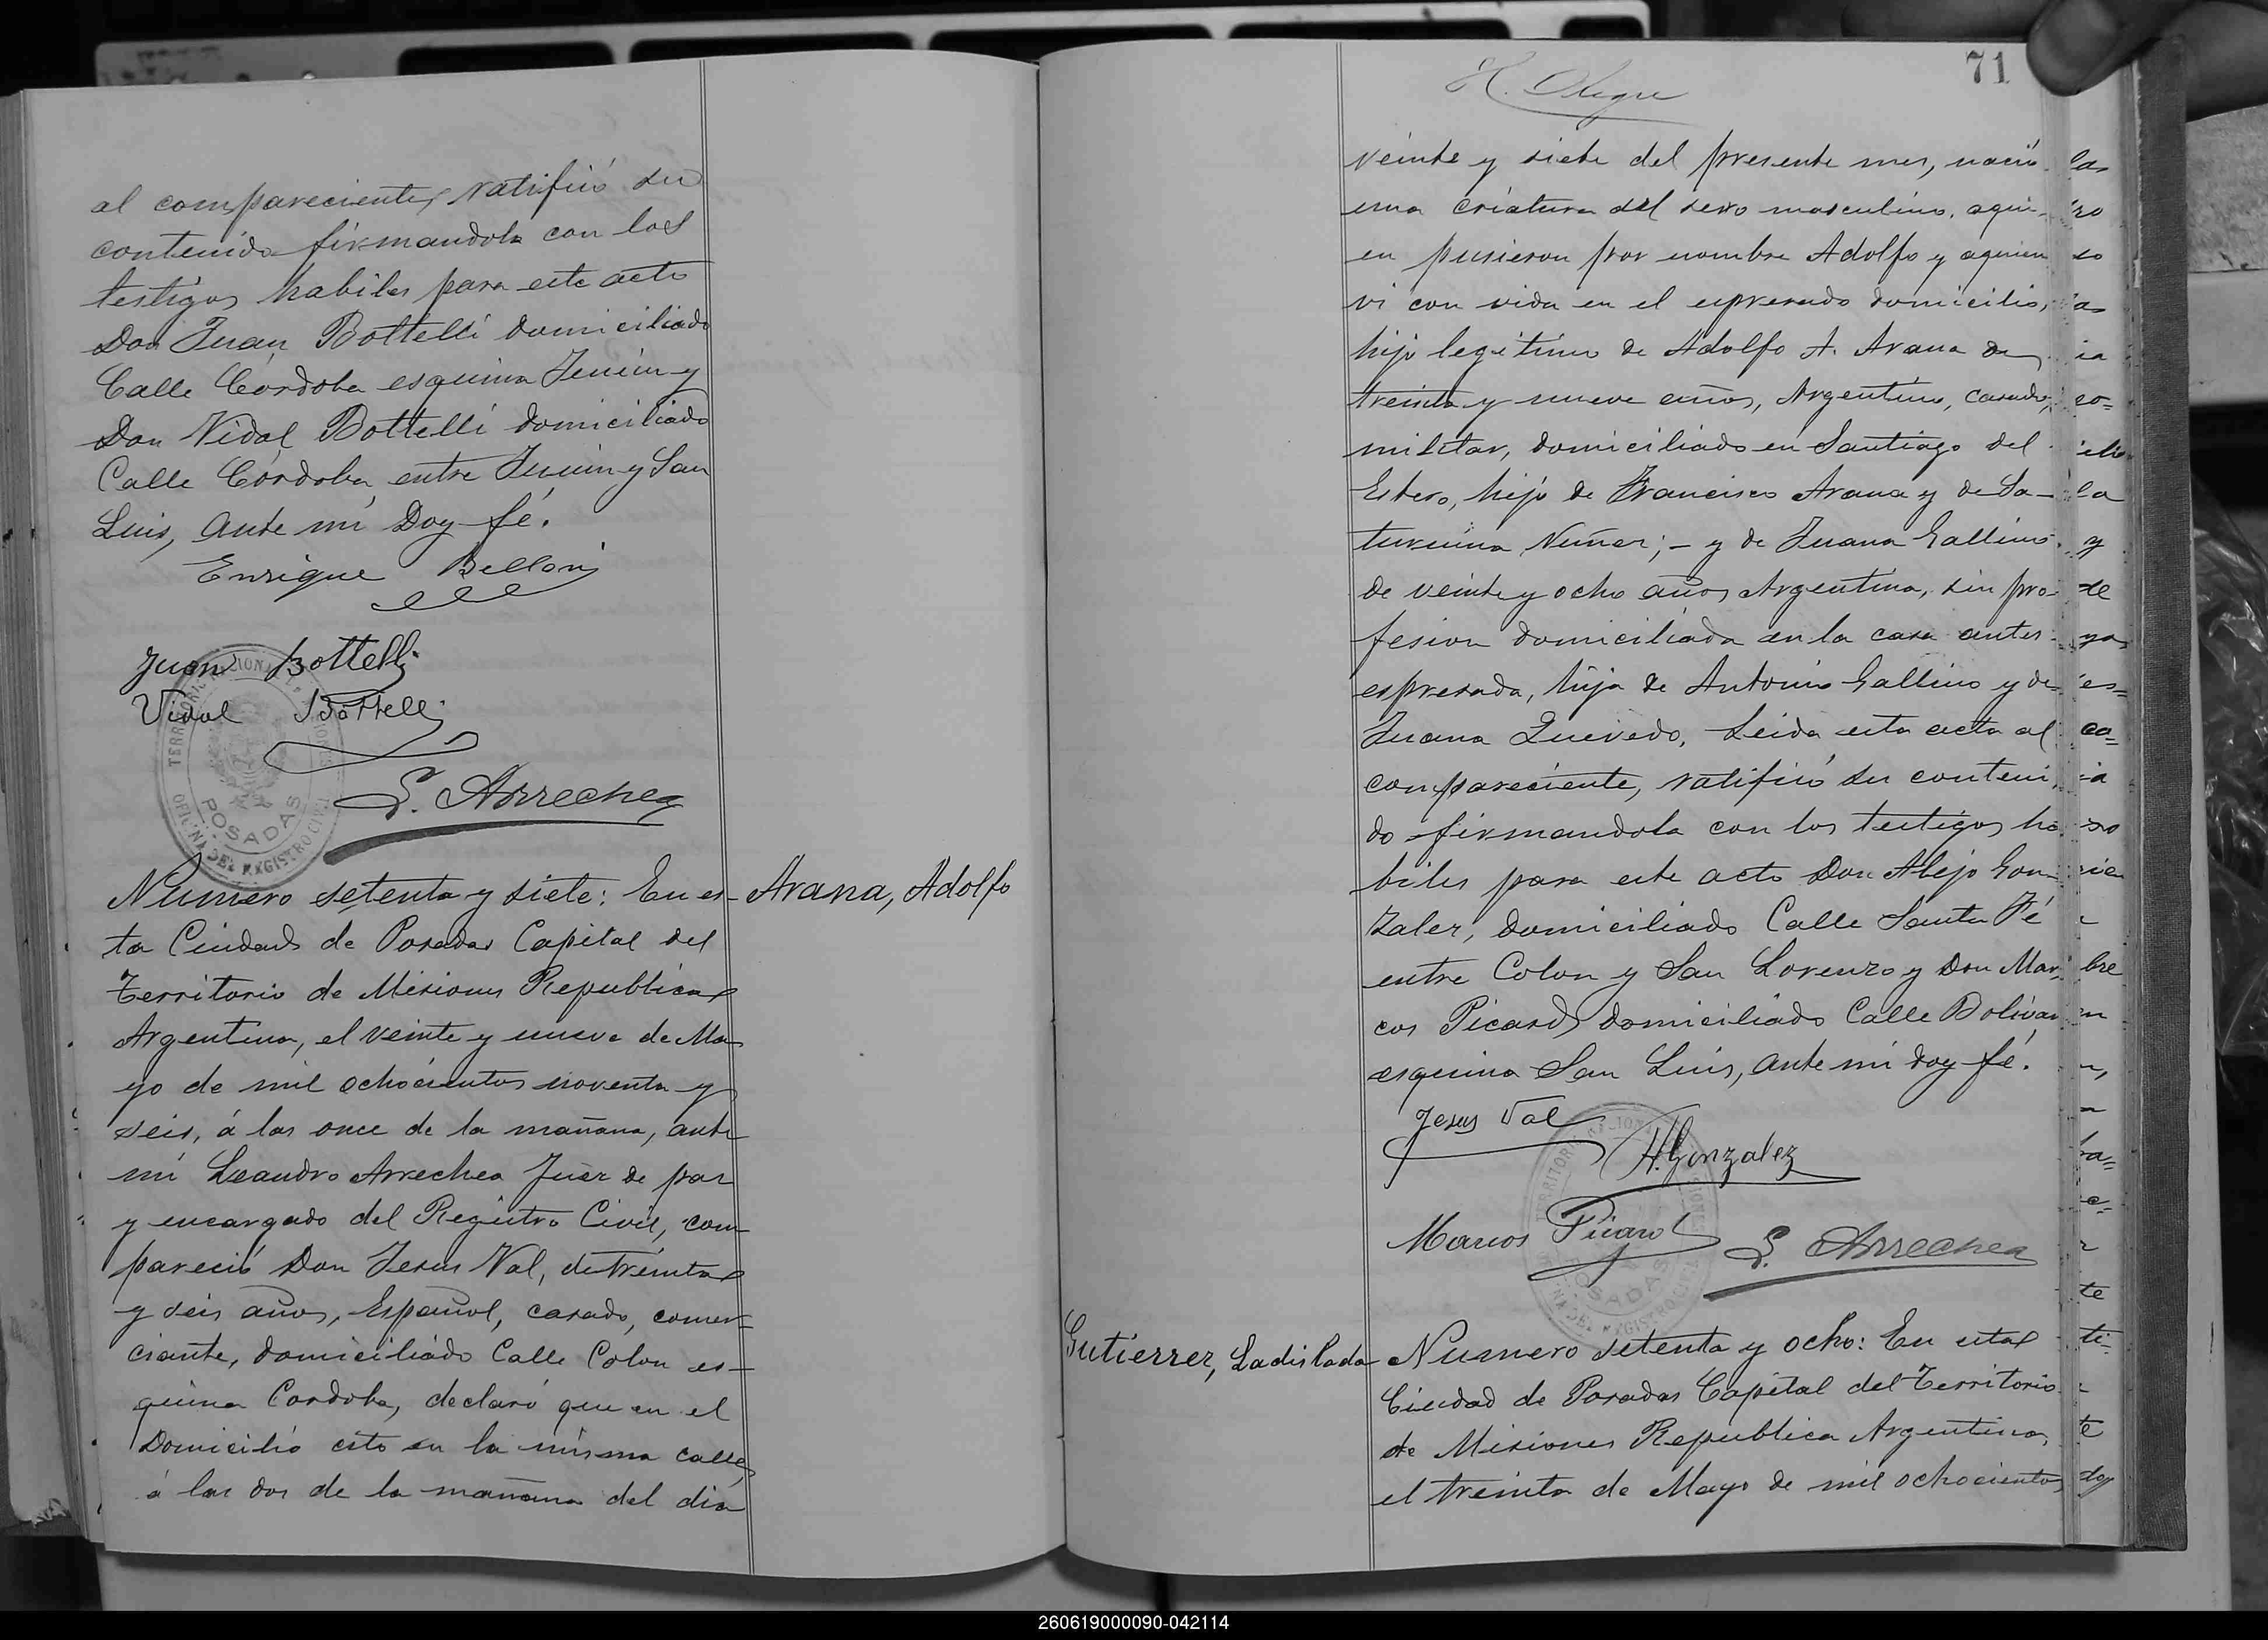 al compareciente, ratificó su
contenido firmandola con los
testigos habiles para este acto
Don Juan Bottelli domiciliado
Calle Córdoba esquina Junin y
Don Vidal Bottelli domiciliado
Calle Córdoba entre Junin y San
Luis, ante mi Doy fé.
Enrique Belloni
Juan Bottelli
Vidal Bottelli
L. Arrechea
TERRITORIO NACIONAL
POSADAS
OFICINA DEL REGISTRO CIVIL
Numero setenta y siete: En es-
Arana, Adolfo
ta Ciudad de Posadas Capital del
Territorio de Misiones Republica
Argentina, el veinte y nueve de Ma
yo de mil ochocientos noventa y
seis, á las once de la mañana, ante
mi Leandro Arrechea Juez de paz
y encargado del Registro Civil, com
pareció Don Jesus Val, de treinta
y seis años, Español, casado, comer=
ciante, domiciliado Calle Colon es-
quina Cordoba, declaró que en el
Domicilio cito en la misma calle,
á las dos de la mañana del dia
71
veinte y siete del presente mes, nació
una criatura del sexo masculino, aqui-
en pusieron por nombre Adolfo y aquien
vi con vida en el espresado domicilio,
hijo legitimo de Adolfo A. Arana de
treinta y nueve años, Argentino, casado,
militar, domiciliado en Santiago del
Estero, hijo de Francisco Arana y de Sa-
turnina Nuñez; - y de Juana Gallino
de veinte y ocho años Argentina, sin pro-
fesion domiciliada en la casa antes
espresada, hija de Antonio Gallino y de
Juana Quevedo. Leida esta acta al
compareciente, ratificó su conteni
do firmandola con los testigos ha
biles para este acto Don Alejo Gon-
zalez, domiciliado Calle Santa Fé
entre Colon y San Lorenzo y Don Mar
cos Picard domiciliado Calle Bolivar
esquina San Luis, ante mi doy fé.
Jesus Val
A. Gonzalez
Marcos Picard
L. Arrechea
TERRITORIO NACIONAL
POSADAS
REGISTRO CIVIL
Gutierrez, Ladislada
Numero setenta y ocho: En esta
Ciudad de Posadas Capital del Territorio
de Misiones Republica Argentina,
el treinta de Mayo de mil ochocientos
260619000090-042114